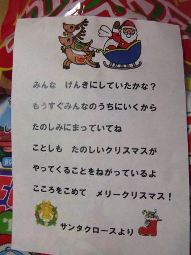 みんな　げんきにしていたかな？
もうすぐみんなのうちにいくから
たのしみにまっていてね
ことしも　たのしいクリスマスが
やってくることをねがっているよ
こころをこめて　メリークリスマス！
サンタクロースより